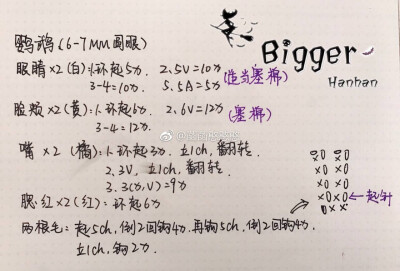 鹦鹉 (6-7MM圆眼)
Bigger
Hanhan
眼睛×2(白):1.环起5力. 2.5V=10力
3-4=10力. 5.5A=5力 (适当塞棉)
脸颊×2(黄):1.环起6力. 2.6V=12力
3-4=12力. (塞棉)
嘴×2(橘):1.环起3力. 立1ch,翻转.
2.3V,立1ch,翻转.
3.3(X,V)=9力
腮红×2(红):环起6力
两根毛:起5ch,倒2回钩4力.再钩5ch,倒2回钩4力.
立1ch,钩2力.
起针